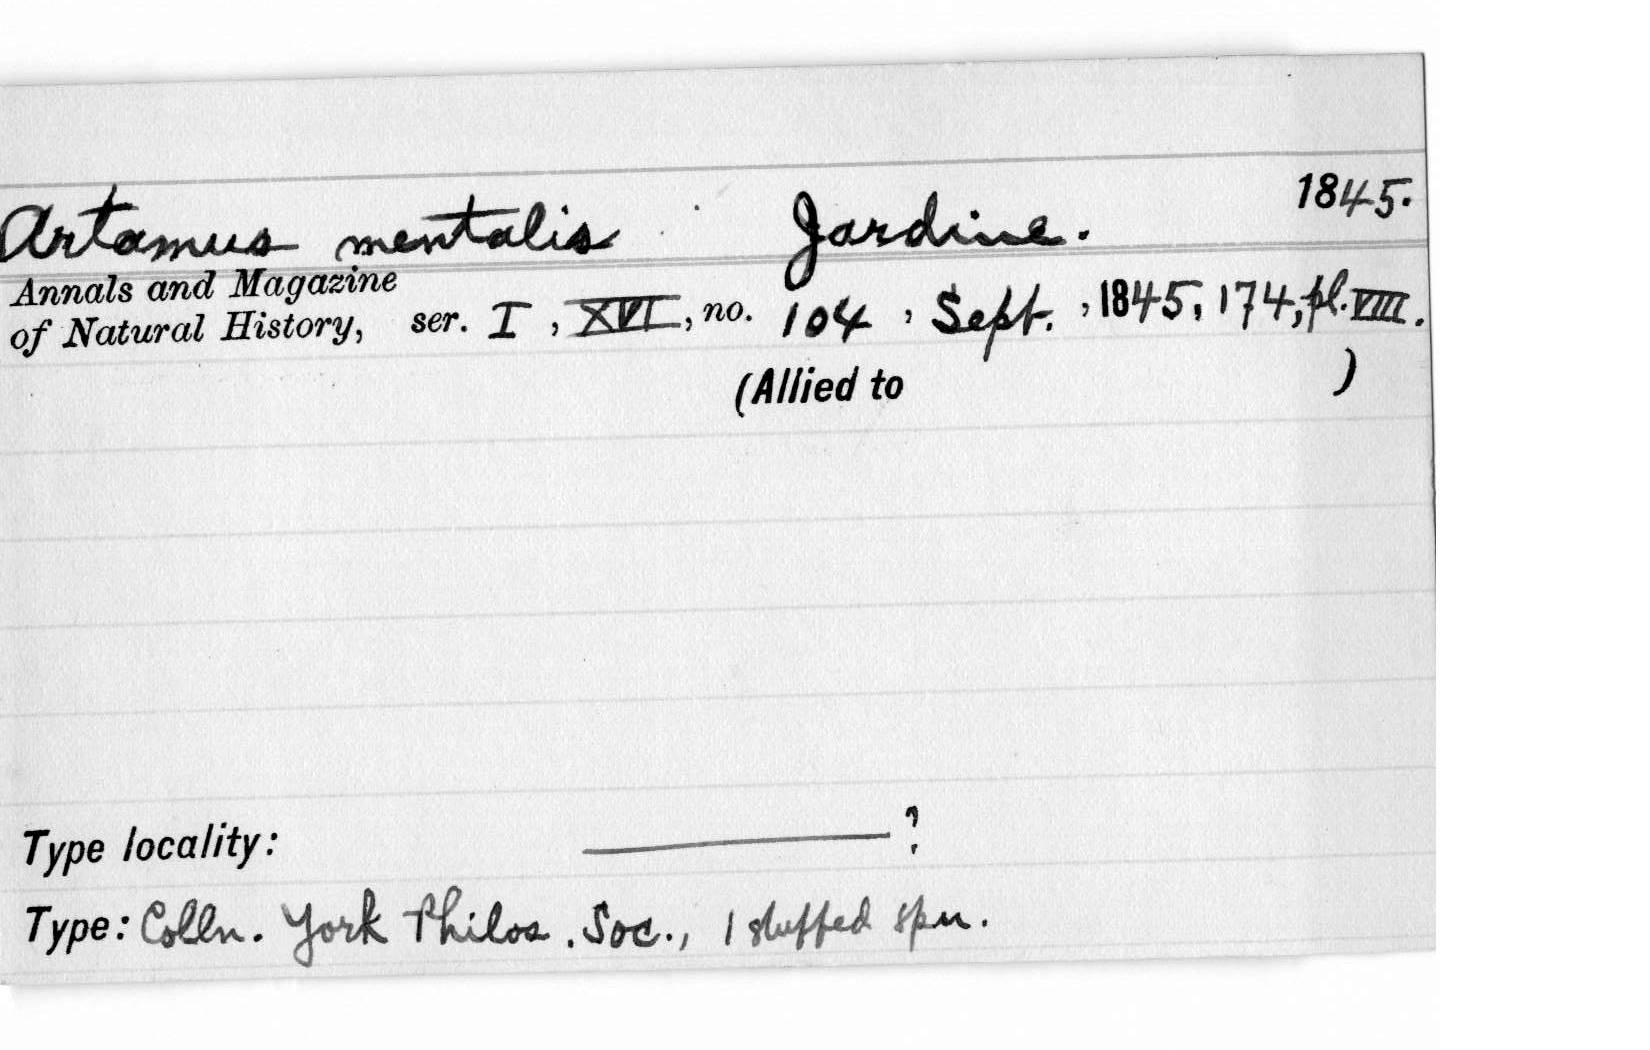 1845.
Artamus mentalis Jardine.
Annals and Magazine
of Natural History, ser. I, XVI, no. 104, Sept., 1845, 174, pl. VIII.
(Allied to )
Type locality: ———?
Type: Colln. York Philos. Soc., 1 stuffed spn.